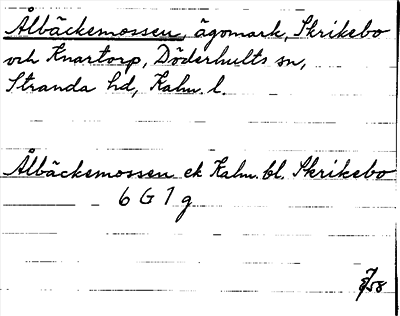 Ålbäckemossen, ägomark, Skrikebo
och Knartorp, Döderhults sn,
Stranda hd, Kalm. l.
Ålbäckemossen ek Kalm. bl. Skrikebo
6 G 7 g